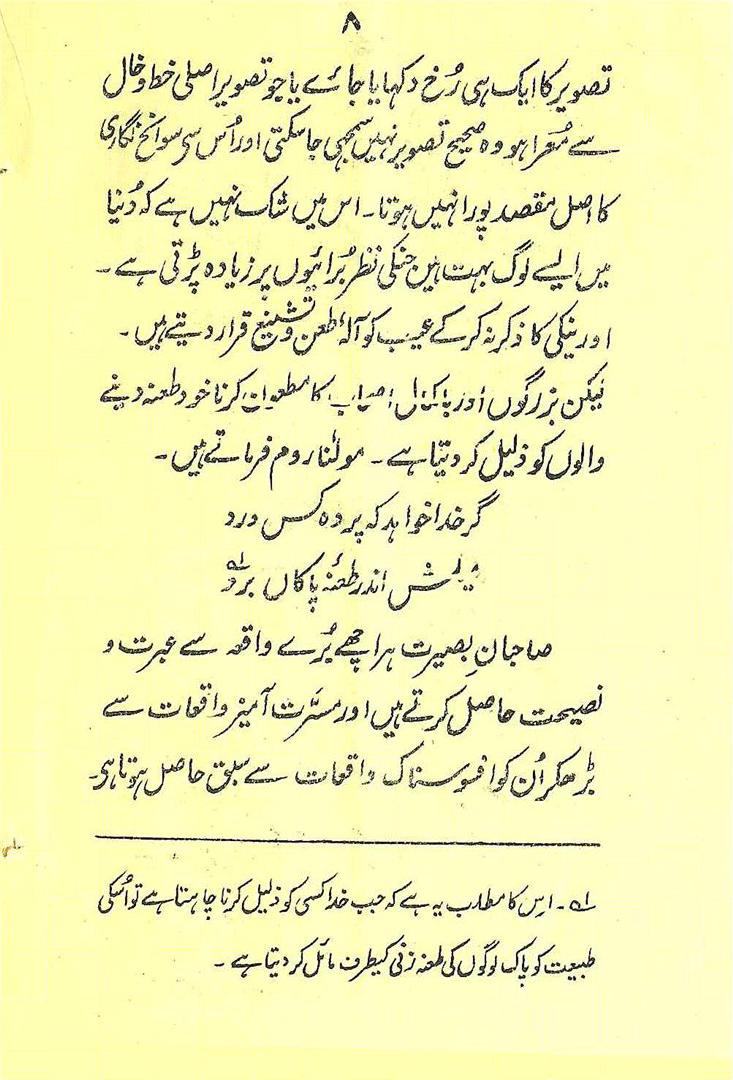 ۸
تصویر کا ایک ہی رُخ دکہایا جائے یا جو تصویر اصلی خط و خال
سے مُعرا ہو وہ صحیح تصویر نہیں سمجھی جاسکتی اور اُس سی سوانح نگاری
کا اصل مقصد پورا نہیں ہوتا۔ اس میں شک نہیں ہے کہ دُنیا
میں ایسے لوگ بہت ہین جنکی نظر بُرائیوں پر زیادہ پڑتی ہے۔
اور نیکی کا ذکر نہ کر کے عیب کو آلۂ طعن و تشنیع قرار دیتے ہیں۔
لیکن بزرگوں اور باکمال اصحاب کا مطعون کرنا خود طعنہ دینے
والوں کو ذلیل کر دیتا ہے۔ مولٰنا روم فرماتے ہیں۔
گر خدا خواہد کہ پردہ کس درد
میلش اندر طعنۂ پاکاں برد ؎۱
صاحبانِ بصیرت ہر اچھے بُرے واقعہ سے عبرت و
نصیحت حاصل کرتے ہیں اور مسرّت آمیز واقعات سے
بڑھکر اُن کو افسوسناک واقعات سے سبق حاصل ہوتا ہی۔
؎۱۔ اِس کا مطلب یہ ہے کہ جب خدا کسی کو ذلیل کرنا چاہتا ہے تو اُسکی
طبیعت کو پاک لوگوں کی طعنہ زنی کیطرف مائل کر دیتا ہے۔